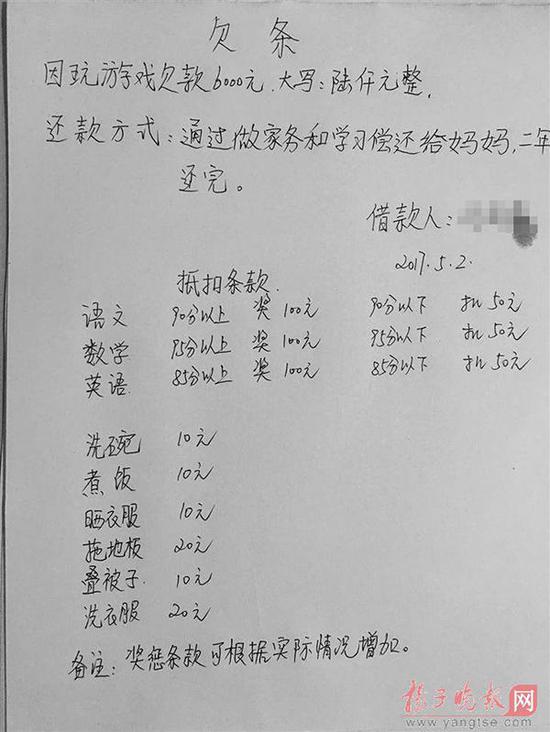 欠条
因玩游戏欠款6000元.大写:陆仟元整.
还款方式:通过做家务和学习偿还给妈妈,二年
还完。
借款人:
2017.5.2.
抵扣条款
语文 90分以上 奖100元 90分以下 扣50元
数学 95分以上 奖100元 95分以下 扣50元
英语. 85分以上 奖100元 85分以下 扣50元
洗碗 10元
煮饭 10元
晒衣服 10元
拖地板 20元
叠被子. 10元
洗衣服 20元
备注:奖惩条款可根据实际情况增加。
扬子晚报网
www.yangtse.com